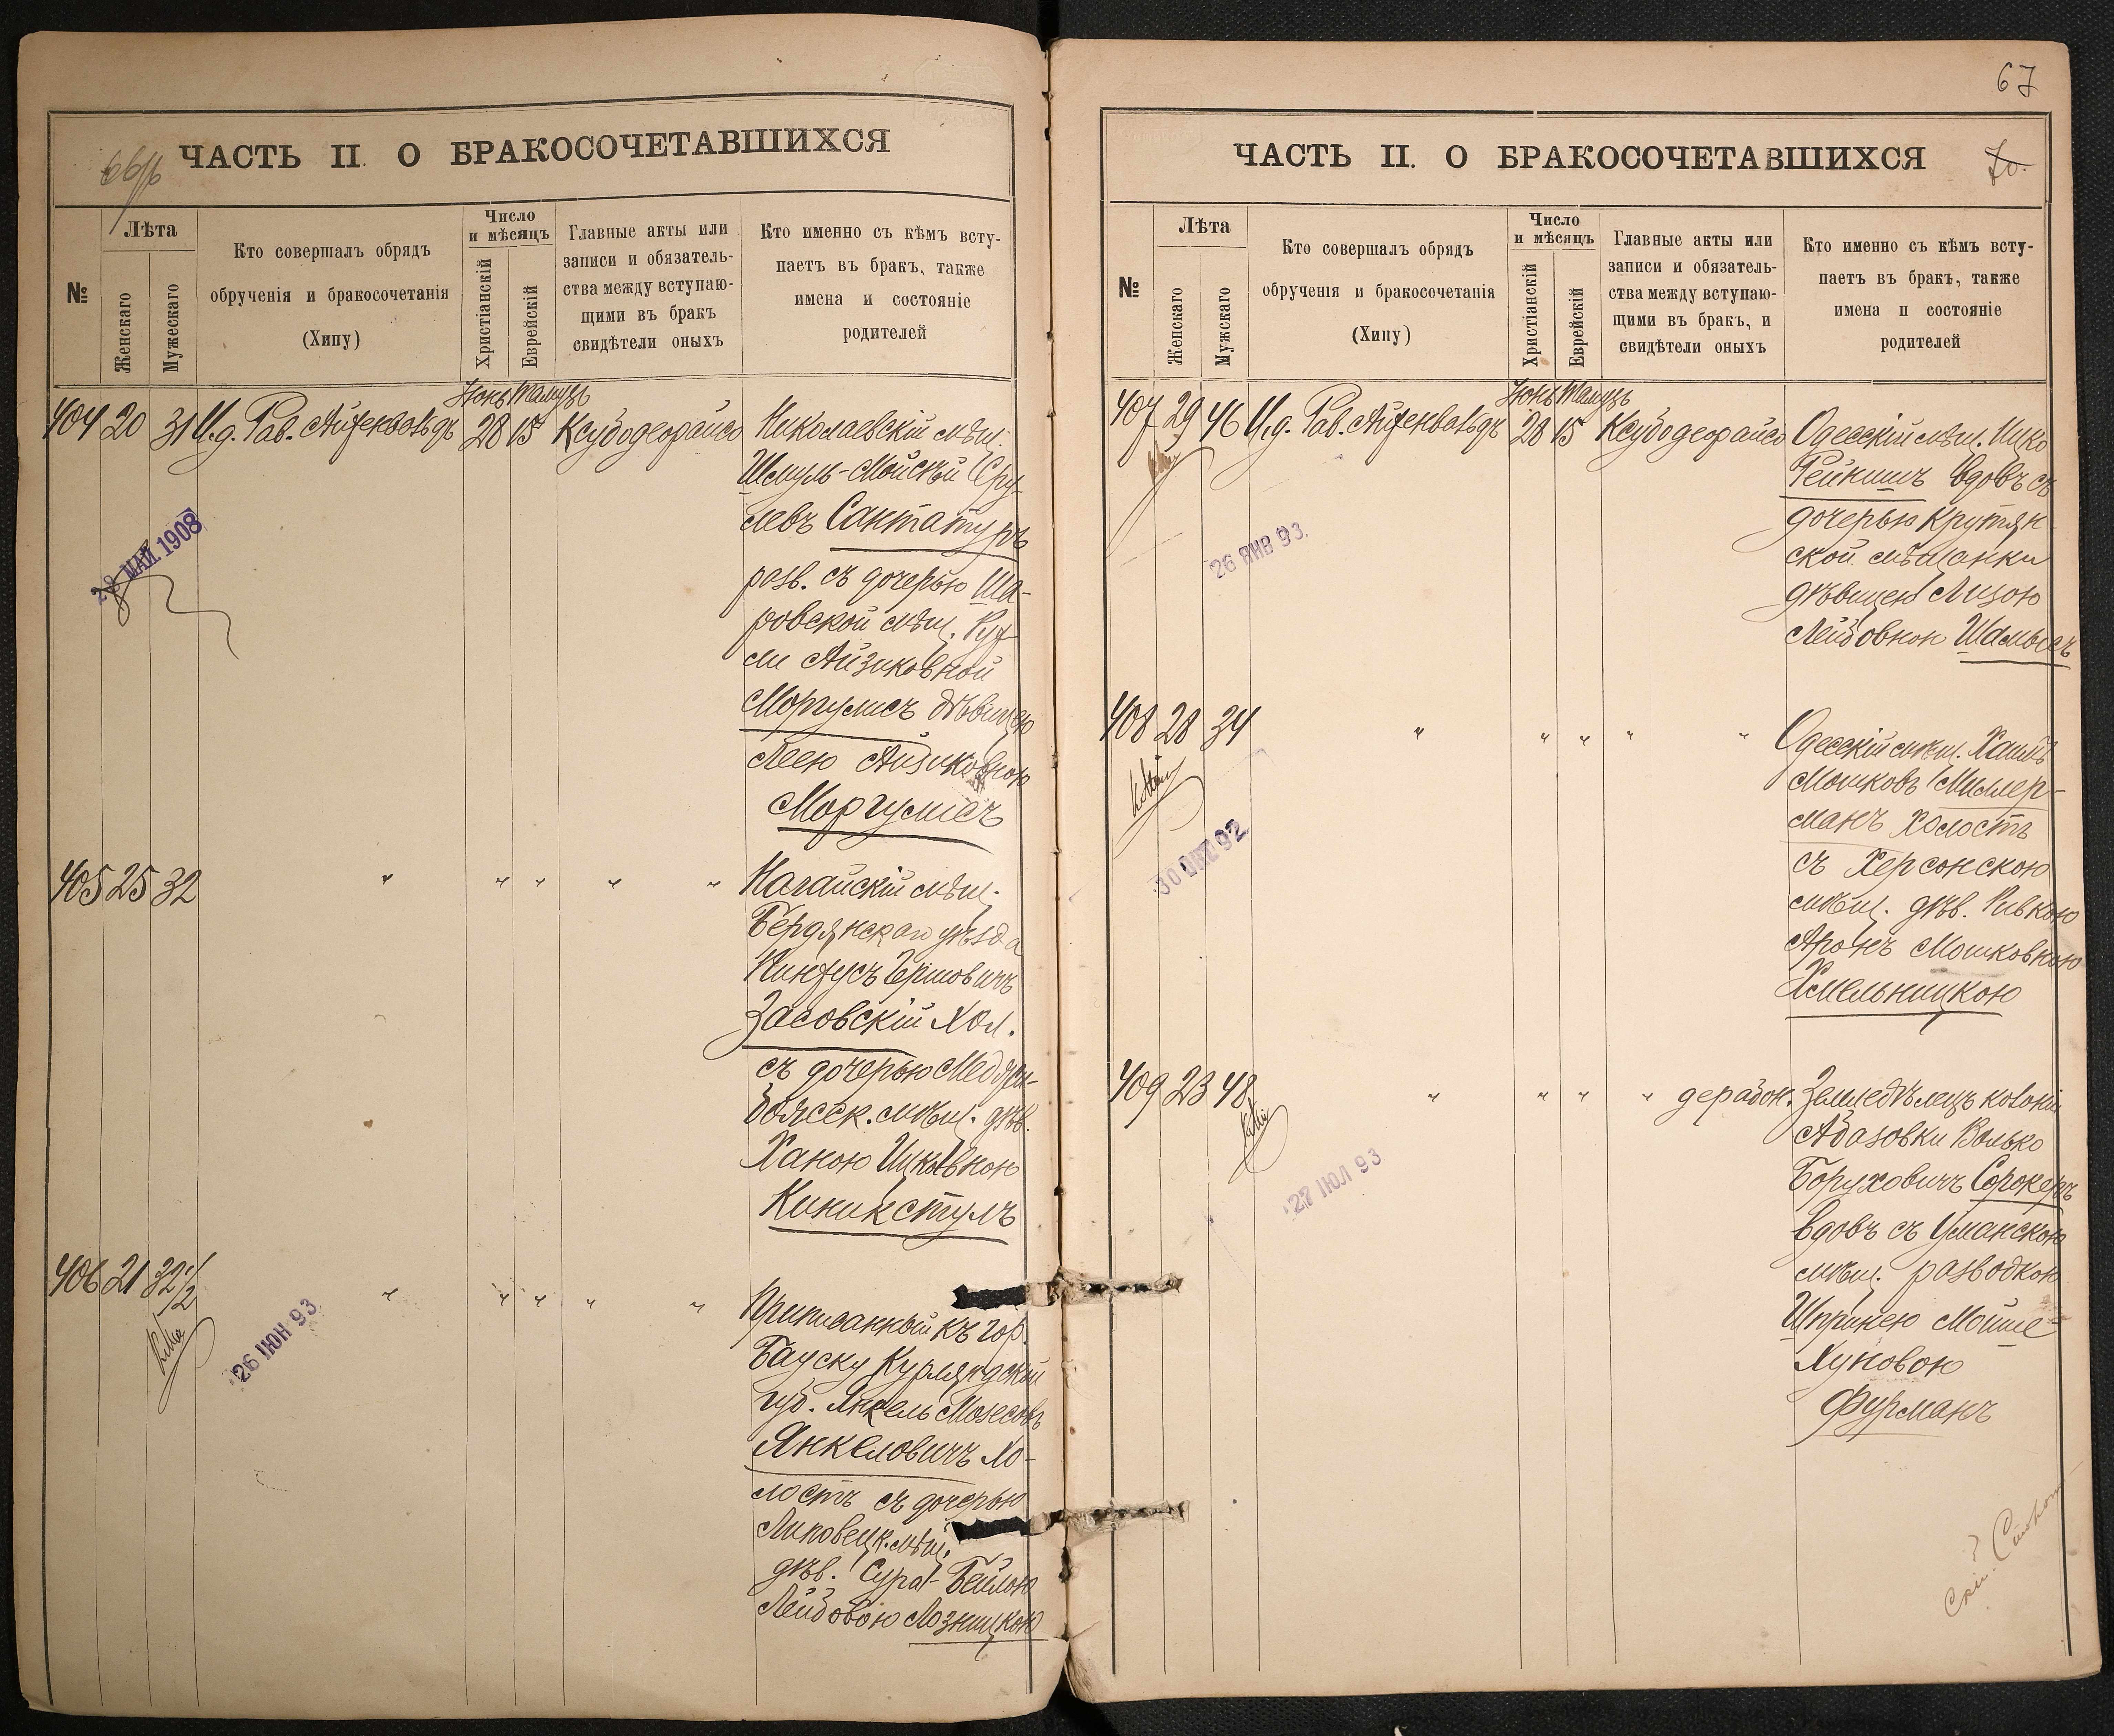 66
ЧАСТЬ II. О БРАКОСОЧЕТАВШИХСЯ
№
Лѣта
Женскаго
Мужескаго
Кто совершалъ обрядъ
обрученія и бракосочетанія
(Хипу)
Число
и мѣсяцъ
Христіанскій
Еврейскій
Главные акты или
записи и обязатель-
ства между вступаю-
щими въ бракъ
свидѣтели оныхъ
Кто именно съ кѣмъ всту-
паетъ въ бракъ, также
имена и состояніе
родителей
Іюнь Тамузъ
404 20 31 И.д. Рав. Айзенвальдъ 28 15 Ксубодеорайсо Николаевскій мѣщ.
Шмуль-Мойсей Сру-
левъ Сантатуръ
разв. съ дочерью Ша-
ровской мѣщ.
ли Айзиковной
Моргулисъ дѣвицею
Леею Айзиковною
Моргулисъ
28 МАЙ 1908
405 25 32 " " " " " Ногайскій мѣщ.
Бердянскаго уѣзда
Пинхусъ Гершовичъ
Засовскій хол.
съ дочерью
мѣщ. дѣв.
Ханою Ицковною
Киникстулъ
406 21 32 1/2 " " " " " Приписанный къ гор.
Бауску Курляндской
губ. Янкель Мозесовъ
Янкеловичъ хо-
лостъ съ дочерью
Липовецк. мѣщ.
дѣв. Сура-Бейлою
Лейбовою Лозницкою
26 ІЮН 93.
67
ЧАСТЬ II. О БРАКОСОЧЕТАВШИХСЯ
70.
№
Лѣта
Женскаго
Мужскаго
Кто совершалъ обрядъ
обрученія и бракосочетанія
(Хипу)
Число
и мѣсяцъ
Христіанскій
Еврейскій
Главные акты или
записи и обязатель-
ства между вступаю-
щими въ бракъ, и
свидѣтели оныхъ
Кто именно съ кѣмъ всту-
паетъ въ бракъ, также
имена и состояніе
родителей
Іюнь Тамузъ
407 29 46 И.д. Рав. Айзенвальдъ 28 15 Ксубодеорайсо Одесскій мѣщ. Ицко
Рейкишъ вдовъ съ
дочерью Крутян-
ской мѣщанки
дѣвицею Лизою
Лейбовною Шамысъ
26 ЯНВ 93.
408 28 34 " " " " " Одесскій мѣщ. Хаимъ
Мошковъ Миллер-
манъ холостъ
съ Херсонскою
мѣщ. дѣв. Ривкою
Аронъ Мошковною
Хмельницкою
30 92
409 23 48 " " " " дерабон. Земледѣлецъ колоніи
Абазовки Волько
Боруховичъ Сорокеръ
вдовъ съ Уманскою
мѣщ. разводкою
Шпринею Мойше
Хуновою
Фурманъ
27 ІЮЛ 93